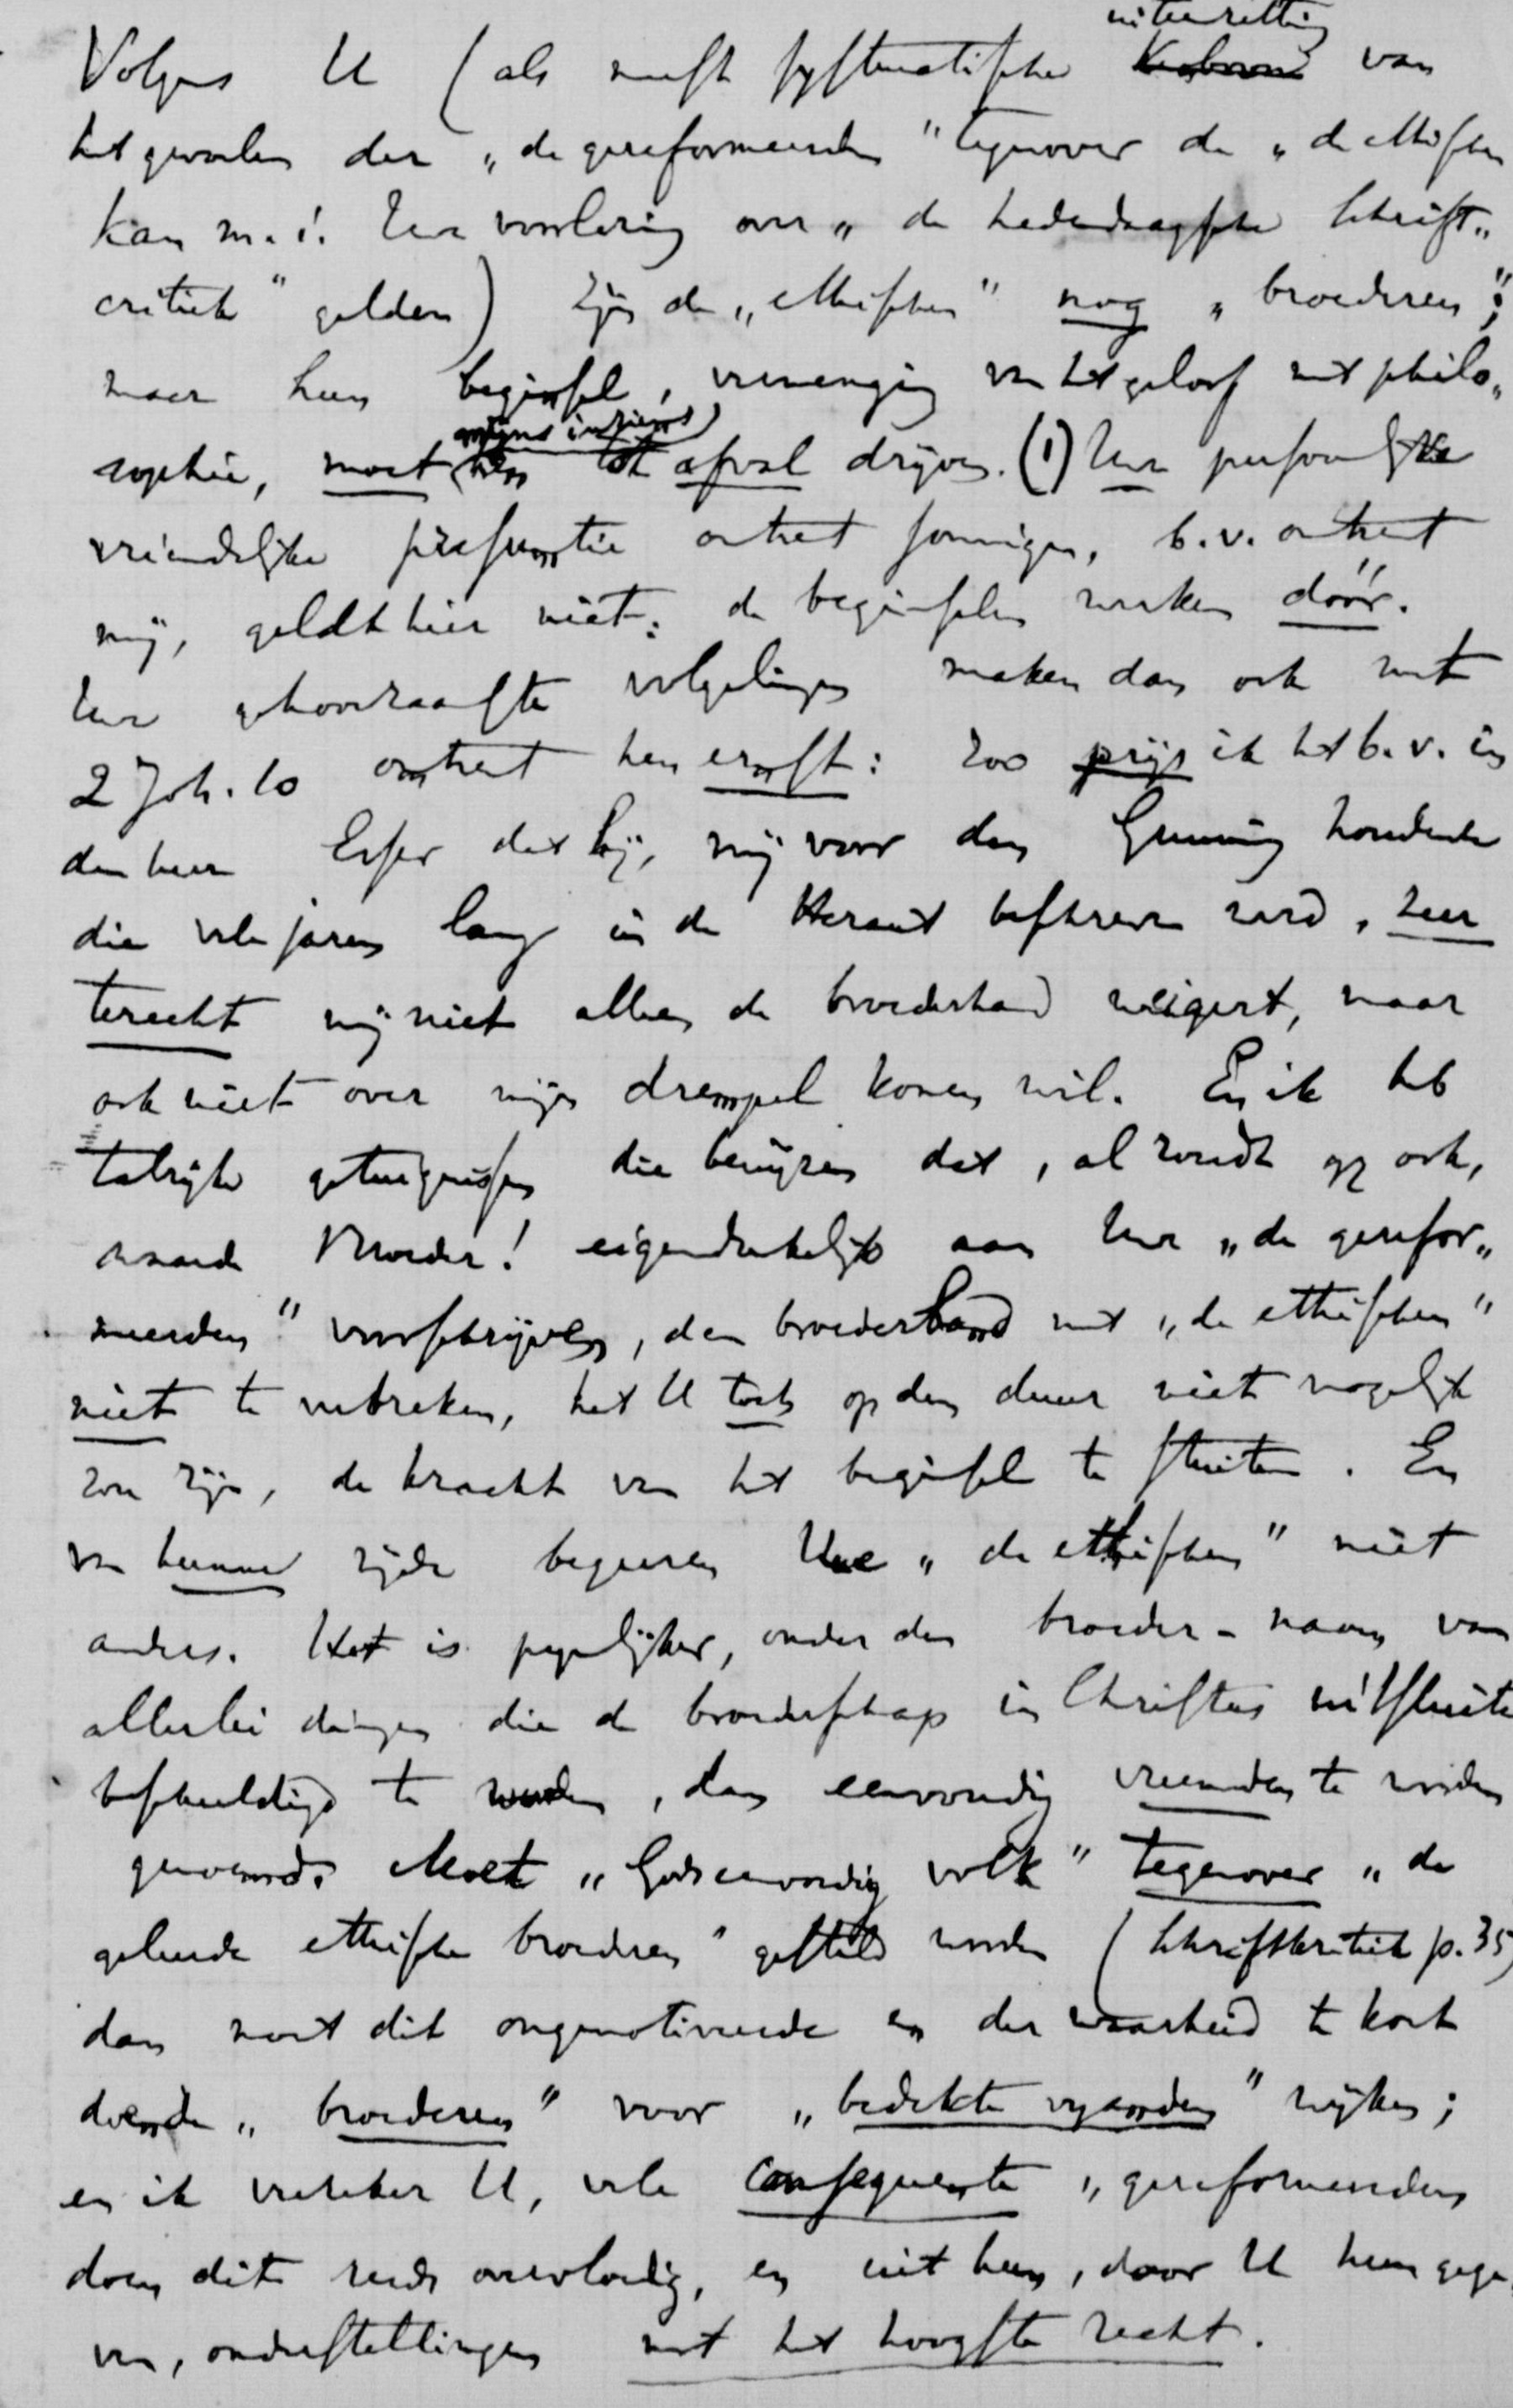 uiteenzetting
Volgens U (als meest systematische van
het gevoelen der „de gereformeerden" tegenover de „de ethischen
kan m.i. Uwe voorlezing over „de hedendaagsche Schrift„
critiek" gelden) zijn de „ethischen" nog „broederen";
maar hun beginsel, vermenging van het geloof met philo„
mijns inziens
sophie, moet hen tot afval drijven. (1) Uwe persoonlijke
vriendelijke præsumtie omtrent sommigen, b.v. omtrent
mij, geldt hier niet: de beginselen werken dóór.
Uwe gehoorzaamste volgelingen maken dan ook met
2 Joh. 10 omtrent hen ernst: zoo prijs ik het b.v. in
den heer dat hij, mij voor den Gunning houdende
die vele jaren lang in de Heraut beschreven werd, zeer
terecht mij niet alleen de broederhand weigert, maar
ook niet over mijn drempel komen wil. En ik heb
talrijke getuigenissen die bewijzen dat, al zoudt gij ook,
waarde Broeder! uw „de gerefor„
meerden" voorschrijven, den broederband met „de ethischen"
niet te verbreken, het U toch op den duur niet mogelijk
zou zijn, de kracht van het beginsel te stuiten. En
van hunne zijde begeeren Uwe „de ethischen" niet
anders. Het is pijnlijker, onder den broeder-naam van
allerlei dingen die de broederschap in Christus uitsluiten
beschuldigd te worden, dan eenvoudig vreemden te worden
genoemd. Moet „Gods eenvoudig volk" tegenover „de
geleerde ethische broederen" gesteld worden (Schriftkritiek p. 35)
dan moet dit ongemotiveerde en der waarheid te kort
doende „broederen" voor „bedekte vijanden" wijken;
en ik verzeker U, vele consequente „gereformeerden
doen dit reeds overvloedig, en uit hun, door U hun gege„
ven, onderstellingen met het hoogste recht.